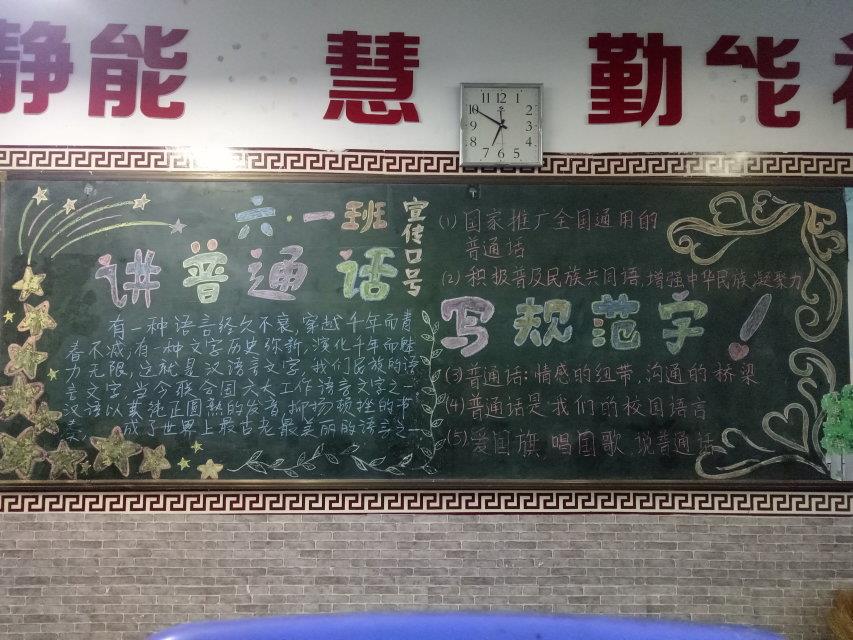 静能 慧 勤能
11 12 1
10 2
9 3
8 4
7 6 5
六·一班
讲普通话
宣传口号
有一种语言终久不衰,穿越千年而青
春不减,有一种文字历史弥新,演化千年而魅
力无限,这就是汉语言文字,我们民族的语
言文字,当今联合国六大工作语言文字之一
汉语以其纯正圆熟的发音,抑扬顿挫的节
奏,成了世界上最古老最美丽的语言之一
(1)国家推广全国通用的
普通话
(2)积极普及民族共同语,增强中华民族凝聚力
写规范字!
(3)普通话:情感的纽带,沟通的桥梁
(4)普通话是我们的校园语言
(5)爱国旗,唱国歌,说普通话